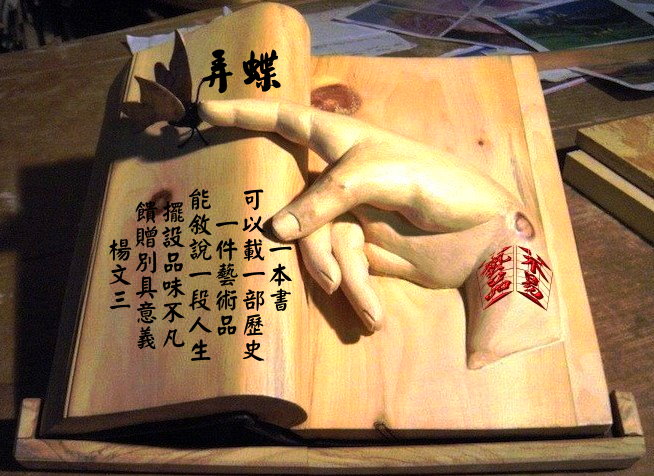 弄蝶
一本書
可以載一部歷史
一件藝術品
能敘說一段人生
擺設品味不凡
饋贈別具意義
楊文三
木易
藝品